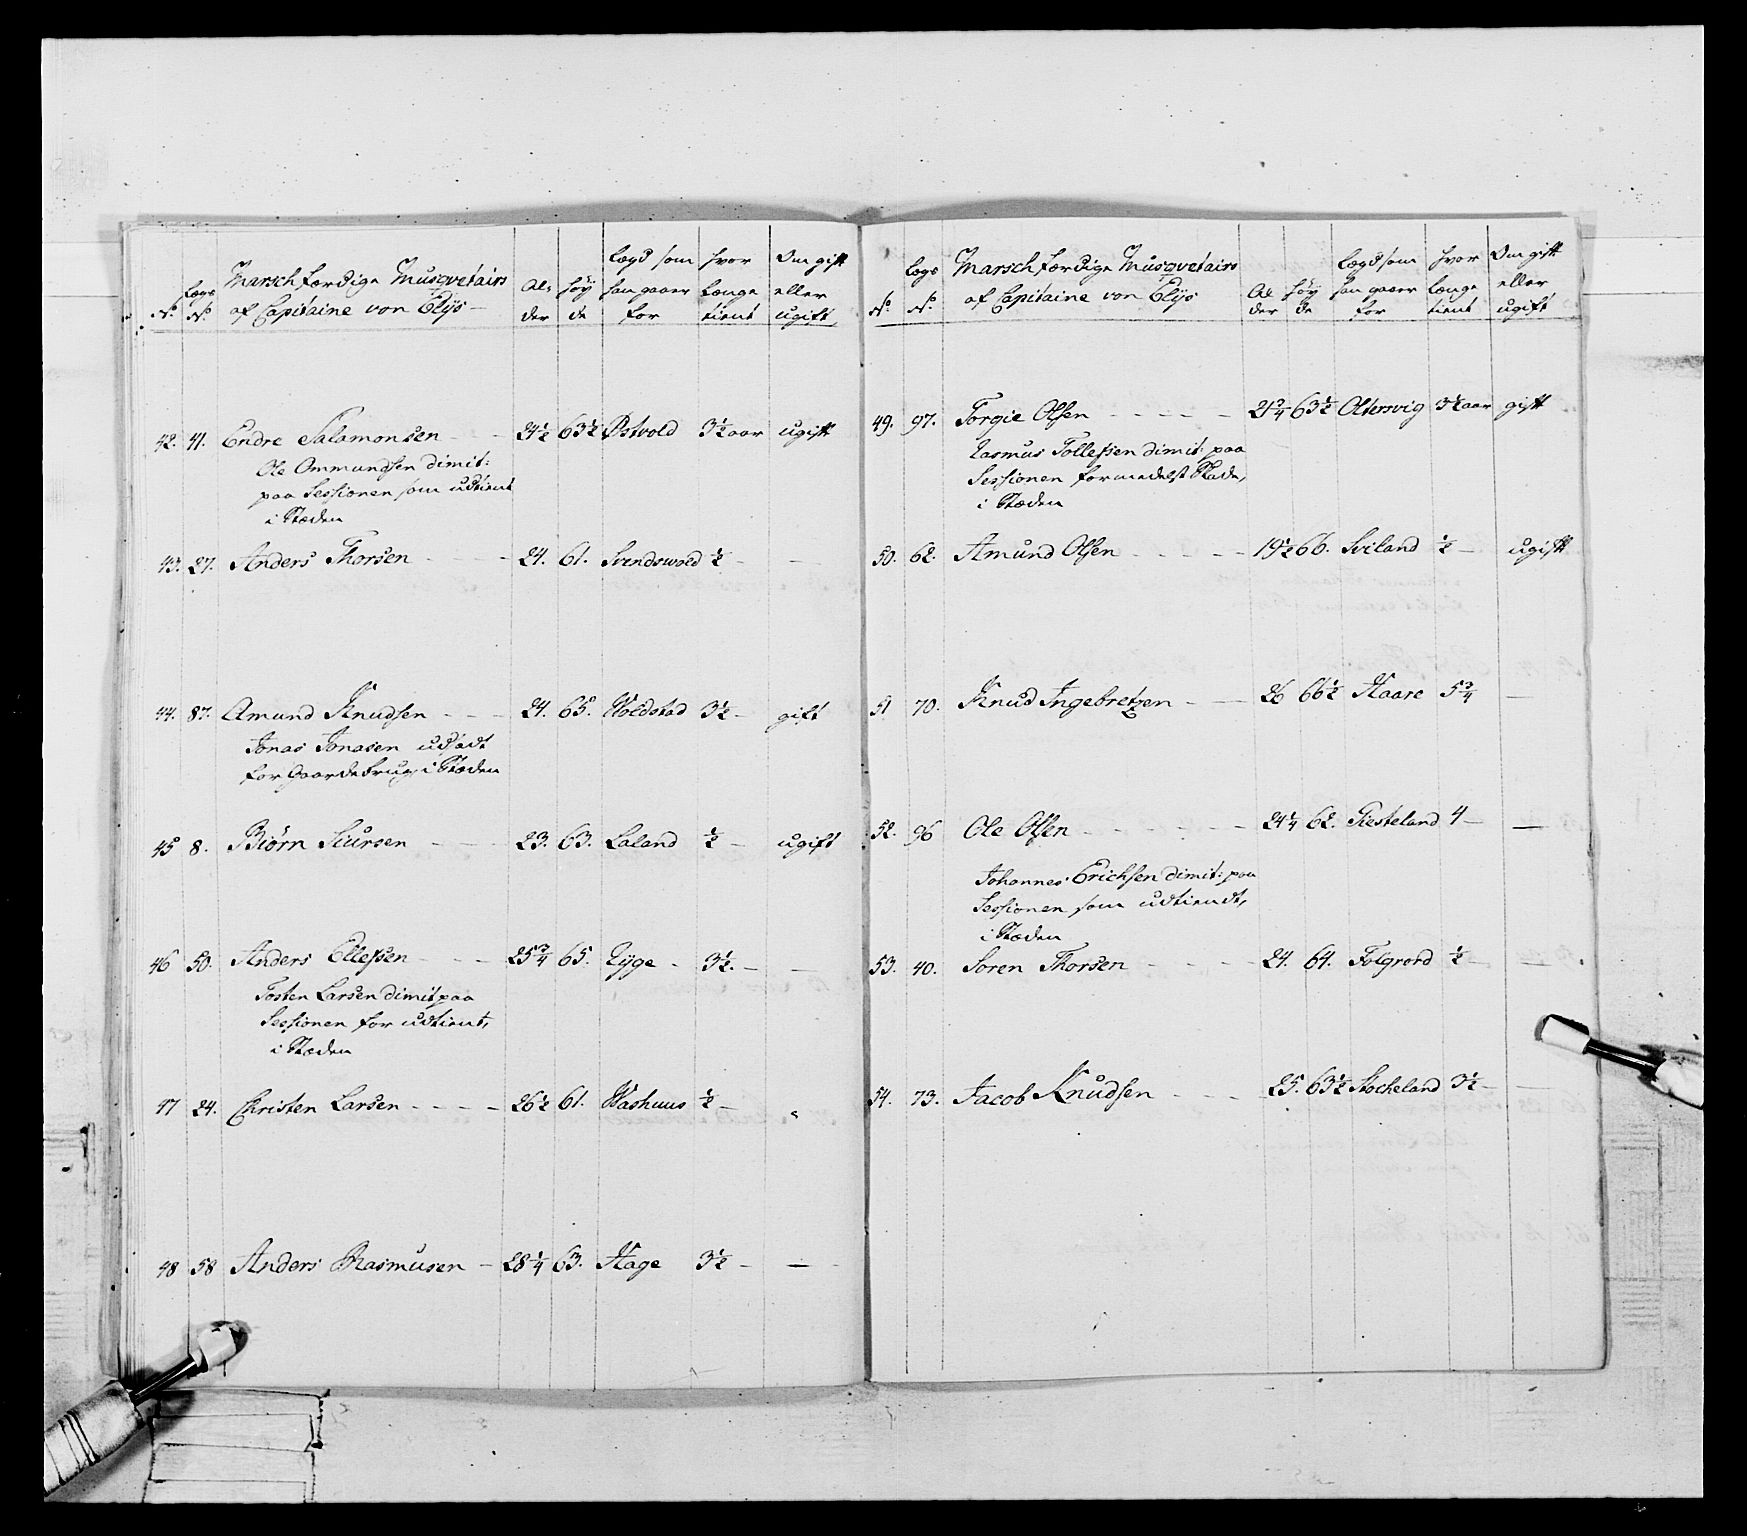 No. Lægs No. Marschfærdige Musqvetairs af Capitaine von Elÿs Alder Høyde Lægd som han gaaer for Hvor længe tient Om gift eller ugift
42. 41. Endre Salamonsen - - 24½ 63½ Østvold 3½ aar ugift
Ole Ommundsen dimit:
paa Sessionen som udtient
i Stæden
43. 27. Anders Thorsen - - - 24. 61. Svendswold ½ - -
44. 87. Amund Knudsen - - - 24. 65. Woldstad 3½ - gift
Jonas Jonasen
for Gaardebrug, i Stæden
45 8. Biörn Siursen - - - 23. 63. Laland ½ - ugift
46 50. Anders Ellefsen - - - 25¾ 65. Lÿge - 3½. - -
Tosten Larsen dimit paa
Sessionen for udtient,
i Stæden
47 24. Christen Larsen - - - - 26½ 61. Washuus ½ -
48 58 Anders Rasmusen - 28¼ 63. Hage 3½ - -
No. Lægs No. Marschfærdige Musqvetairs af Capitaine von Elÿs Alder Høyde Lægd som han gaaer for Hvor længe tient Om gift eller ugift
49. 97. Torgie Olsen - - - - - 21¾ 63½ Oltersvig 3½ aar gift
Rasmus Tollefsen dimit: paa
Sessionen formedelst Skade,
i Stæden
50. 62. Amund Olsen - - - - - 19½ 66. Sviland ½ - ugift
51 70. Knud Ingebretzen - - 26 66½ Haare 5¾ -
52. 96 Ole Olsen - - - - - - 24¼ 62. Giesteland 4 - -
Johannes Erichsen dimit: paa
Sessionen som udtiendt,
i Stæden
53. 40. Soren Thorsen - - - - 24. 64. Folgrord ½ - -
54. 73. Jacob Knudsen - - - 25. 63½ Stocheland 3½ - -